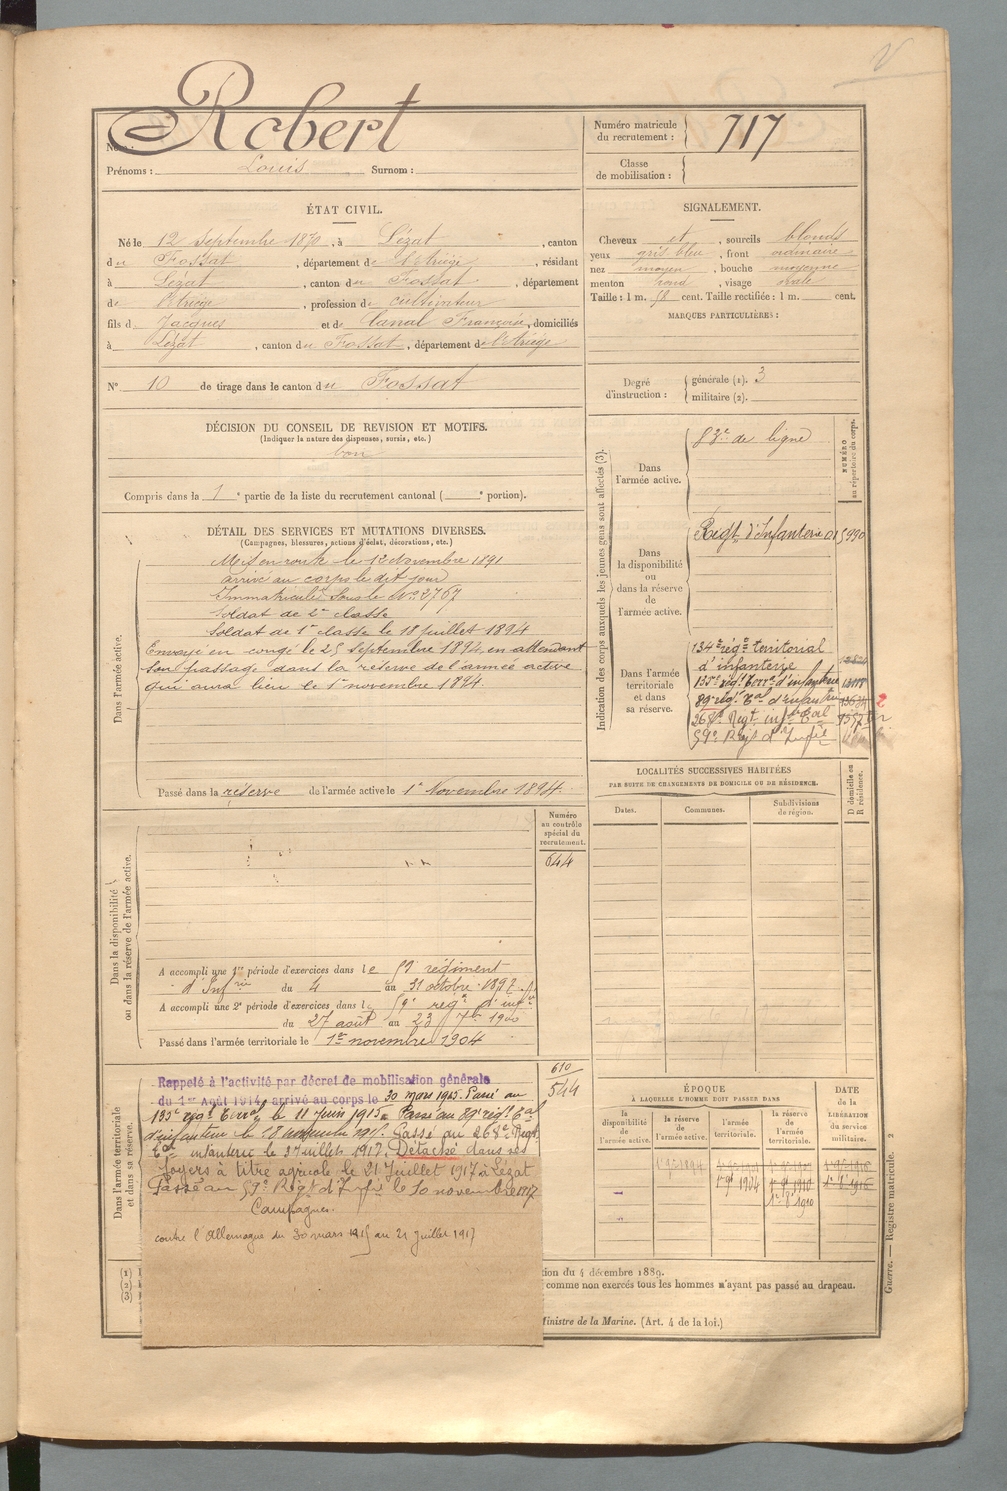 Robert
Nom :
Prénoms : Louis Surnom :
Numéro matricule du recrutement : 717
Classe de mobilisation :
ÉTAT CIVIL.
Né le 12 Septembre 1870, à Lézat, canton
du Fossat, département de l'Ariège, résidant
à Lézat, canton du Fossat, département
de l'Ariège, profession de cultivateur
fils de Jacques et de Canal Françoise, domiciliés
à Lézat, canton du Fossat, département de l'Ariège
N° 10 de tirage dans le canton du Fossat
SIGNALEMENT.
Cheveux et, sourcils blonds
yeux gris bleu, front ordinaire
nez moyen, bouche moyenne
menton rond, visage ovale
Taille : 1 m. 58 cent. Taille rectifiée : 1 m. cent.
MARQUES PARTICULIÈRES :
Degré d'instruction : générale (1). 3
militaire (2).
DÉCISION DU CONSEIL DE REVISION ET MOTIFS.
(Indiquer la nature des dispenses, sursis, etc.)
bon
Compris dans la 1e partie de la liste du recrutement cantonal ( e portion).
DÉTAIL DES SERVICES ET MUTATIONS DIVERSES.
(Campagnes, blessures, actions d'éclat, décorations, etc.)
Dans l'armée active.
Mis en route le 12 Novembre 1891
arrivé au corps le dit jour
Immatriculé sous le N° 2767
Soldat de 2e classe
Soldat de 1e classe le 18 juillet 1894
Envoyé en congé le 25 septembre 1894, en attendant
son passage dans la réserve de l'armée active
qui aura lieu le 1er novembre 1894
Passé dans la réserve de l'armée active le 1er Novembre 1894.
Indication des corps auxquels les jeunes gens sont affectés (3).
NUMÉRO au répertoire du corps.
Dans l'armée active.
83e de ligne
Dans la disponibilité ou dans la réserve de l'armée active.
Rég.t d'Infanterie 01590
Dans l'armée territoriale et dans sa réserve.
134e rég.t territorial
d'infanterie
135e rég.t Terr.al d'infanterie
89e rég.t T.al d'infanterie
268e Rég.t inf.ie T.al
59e Reg.t d'Inf.ie
LOCALITÉS SUCCESSIVES HABITÉES
PAR SUITE DE CHANGEMENTS DE DOMICILE OU DE RÉSIDENCE.
Dates. Communes. Subdivisions de région. D domicile ou R résidence.
Dans la disponibilité ou dans la réserve de l'armée active.
Numéro au contrôle spécial du recrutement.
644
A accompli une 1re période d'exercices dans le 59e régiment
d'Inf.rie du 4 au 31 octobre 1897
A accompli une 2e période d'exercices dans le 59e reg.t d'inf.ie
du 27 août au 23 7bre 1900
Passé dans l'armée territoriale le 1er novembre 1904
610
544
Dans l'armée territoriale et dans sa réserve.
Rappelé à l'activité par décret de mobilisation générale
du 1er Août 1914, arrivé au corps le 30 mars 1915. Passé au
135e rég.t Terr.al le 11 Juin 1915. Passé au 89e rég.t T.al
d'infanterie le 28 novembre 1915. Passé au 268e Rég.t
T.al infanterie le 2 juillet 1917. Détaché dans ses
foyers à titre agricole le 21 Juillet 1917 à Lézat
Passé au 59e Rég.t d'Inf.ie le 10 novembre 1917
Campagnes.
contre l'Allemagne du 30 mars 1915 au 21 juillet 1917
ÉPOQUE
À LAQUELLE L'HOMME DOIT PASSER DANS
la disponibilité de l'armée active.
la réserve de l'armée active.
l'armée territoriale.
la réserve de l'armée territoriale.
DATE de la LIBÉRATION du service militaire.
1er 9bre 1894
1er 9bre 1904
1er 8bre 1910
(1)
(2)
(3)
tion du 4 décembre 1889.
comme non exercés tous les hommes n'ayant pas passé au drapeau.
Ministre de la Marine. (Art. 4 de la loi.)
Guerre. — Registre matricule. 2